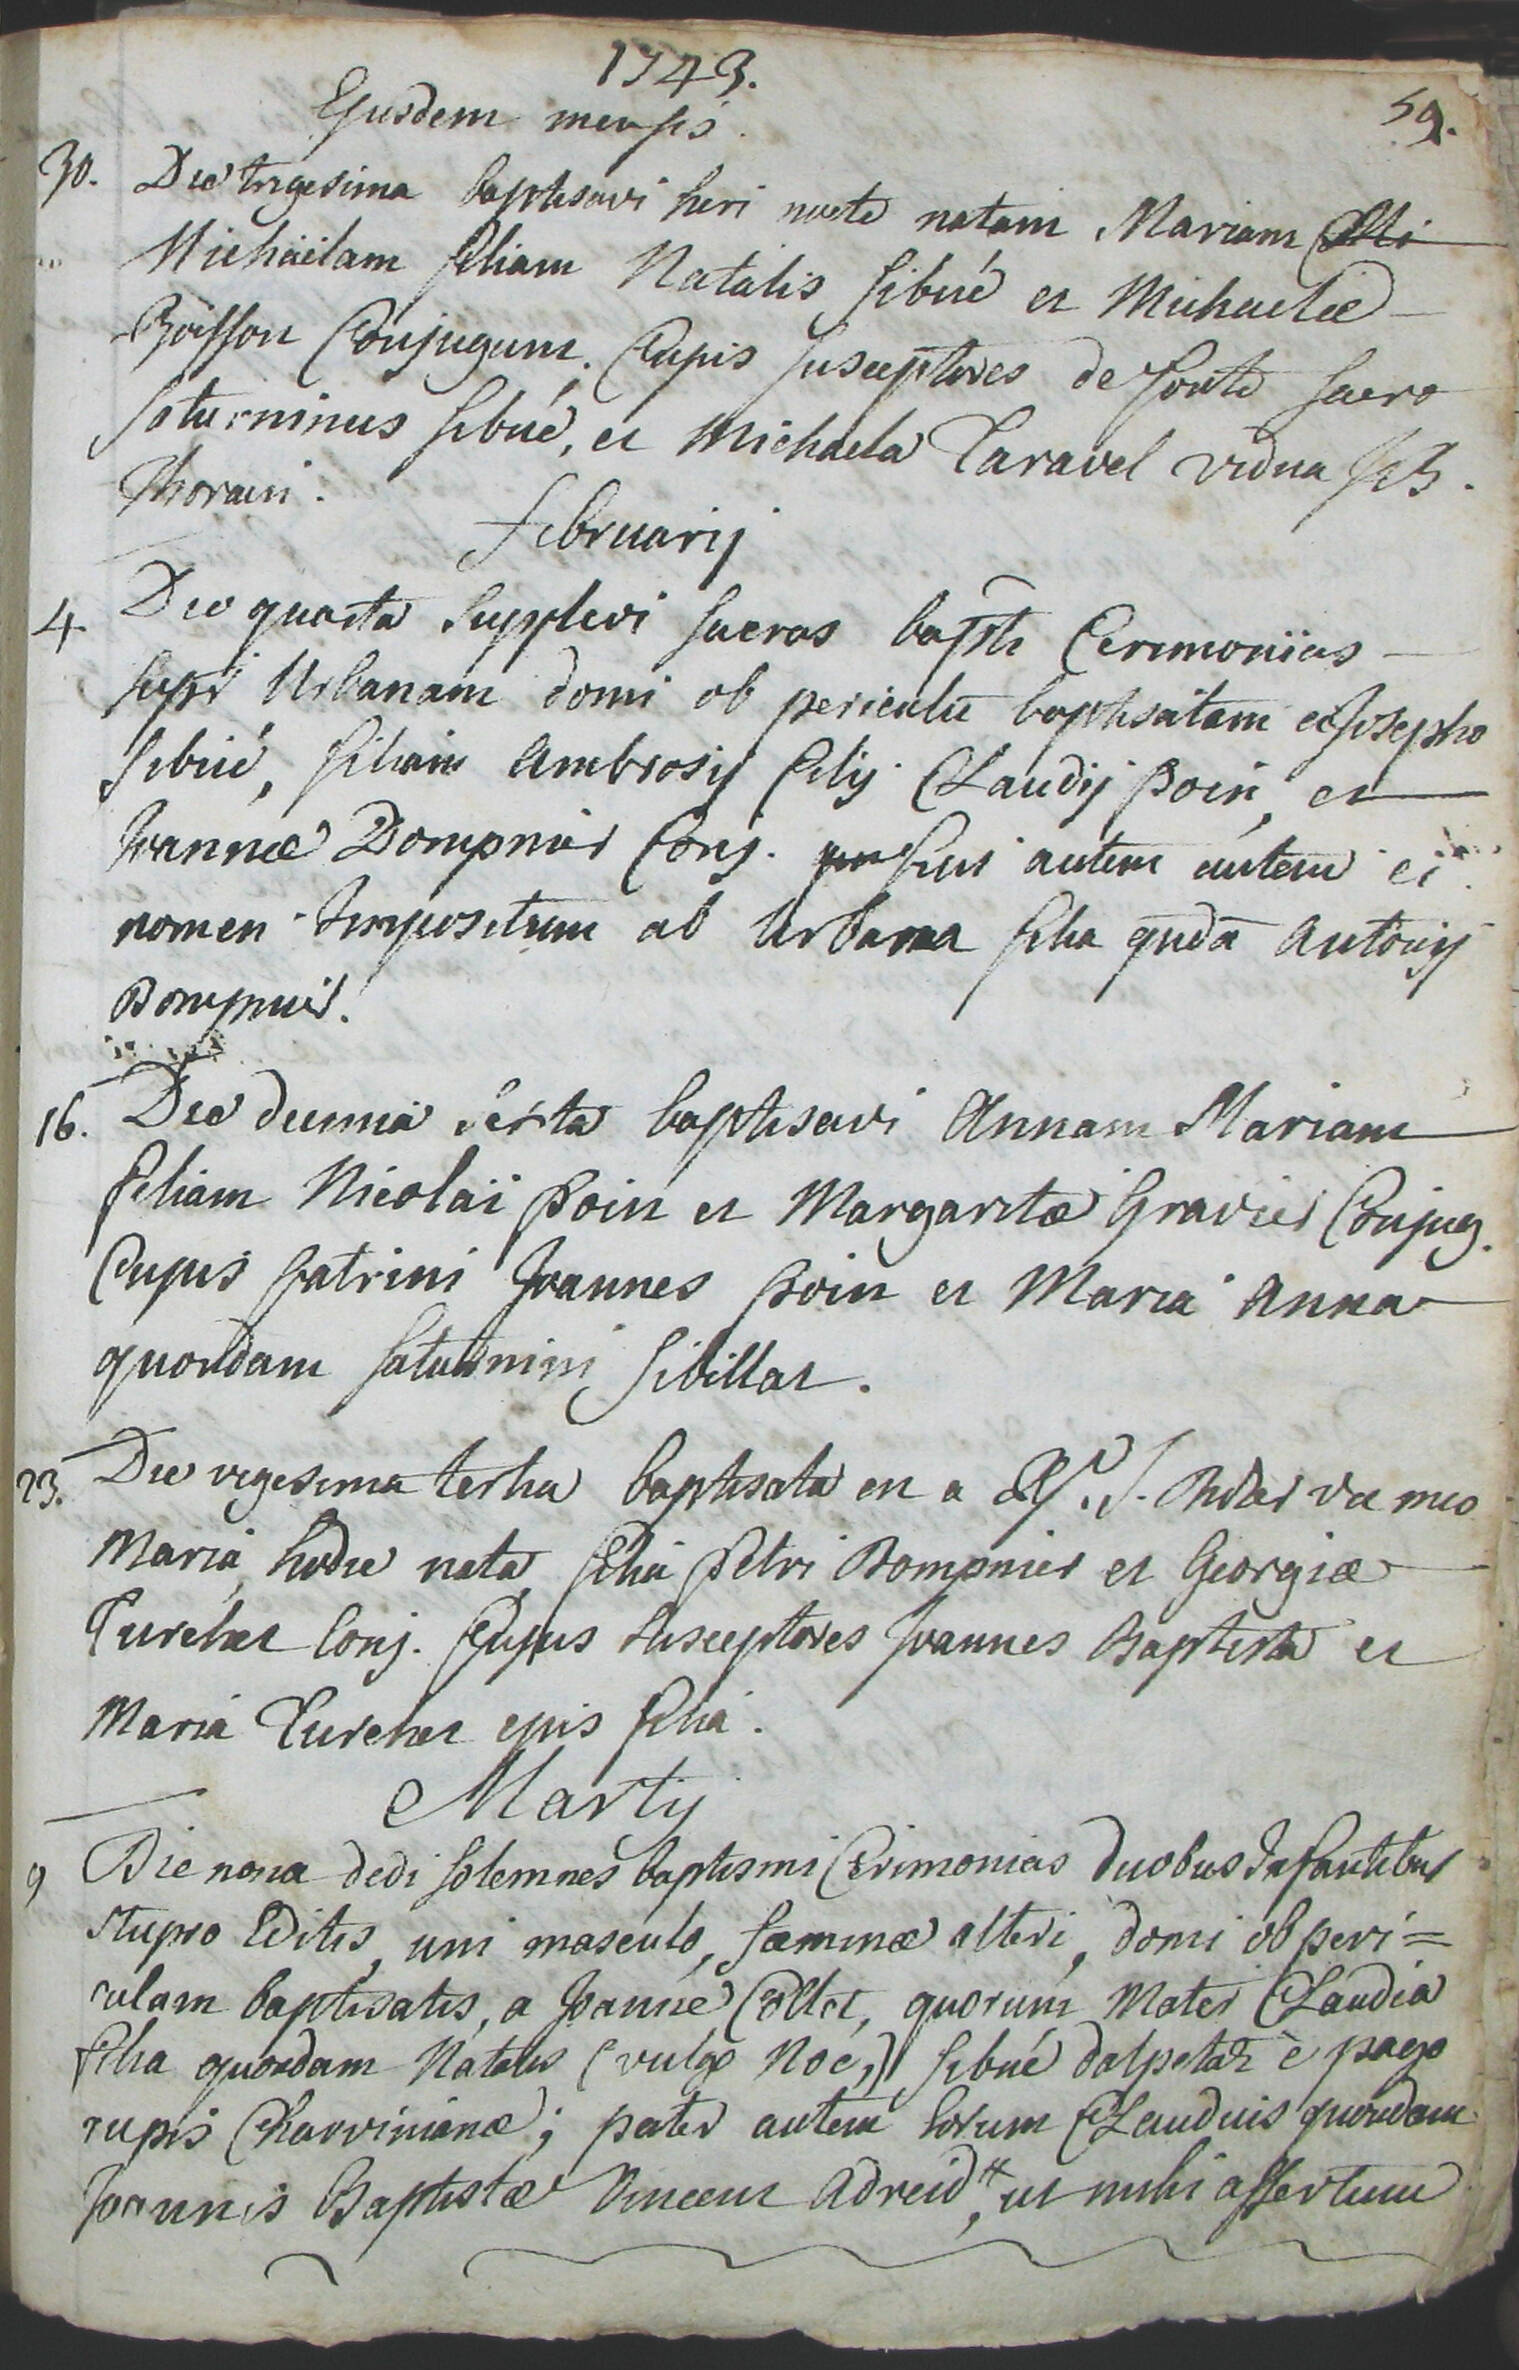 1743.
59.
Ejusdem mensis.
30. Die trigesima baptisavi heri nocte natam Mariam
Michaëlam filiam Natalis Sibué et Michaelæ
Boisson Conjugum. Cujus susceptores de fonte sacro
Saturninus Sibué, et Michaela Taravel vidua
Februarij
4. Die quarta supplevi sacras bapti Ceremonias
supr Urbanam domi ob periculū baptisatam a Josepho
Sibué, filiam Ambrosij filij Claudij Poin, et
Joannæ Dompnier Conj. fuit autem autem ei
nomen Impositum ab Urbana filia qndā Antonij
Dompnier.
16. Die decima sexta baptisavi Annam Mariam
filiam Nicolaï Poin et Margaritæ Gravier Conjug.
Cujus patrini Joannes Poin et Maria Anna
quondam Saturnini Sibillat.
23. Die vigesima tertia baptisata est a meo
Maria, hodie nata, filia Petri Dompnier et Georgiæ
Turchet Conj. Cujus susceptores Joannes Baptista et
Maria Turchet ejus filia.
Martij
9 Die nona dedi solemnes baptismi Cerimonias duobus Infantibus
stupro Editis, uni masculo, fæminæ alteri, domi ob peri=
culum baptisatis, a Joanne Collet, quorum Mater Claudia
filia quondam Natalis (vulgo Noé,) Sibué dalpetaz è pago
rupis Charvinianæ; pater autem horum Claudius quondam
Joannis Baptistæ Vincent Adreid, ut mihi assertum